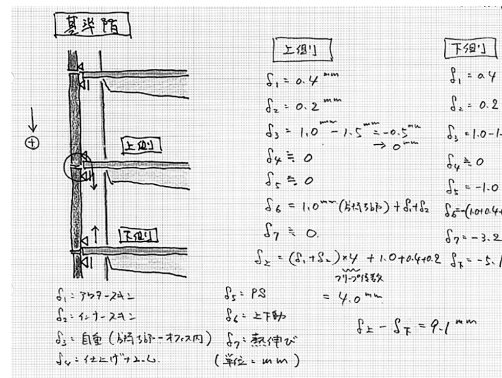 基準階
上側
下側
⊕
δ₁ = アウタースキン
δ₂ = インナースキン
δ₃ = 自重(片持ち部-オフィス内)
δ₄ = 仕上げ+
δ₅ = PS
δ₆ = 上下動
δ₇ = 熱伸び
(単位 = mm)
上側
δ₁ = 0.4 mm
δ₂ = 0.2 mm
δ₃ = 1.0 mm - 1.5 mm = -0.5 mm
→ 0 mm
δ₄ ≒ 0
δ₅ ≒ 0
δ₆ = 1.0 mm (片持ち部) + δ₁+δ₂
δ₇ ≒ 0.
δ上 = (δ₁+δ₂)×4 + 1.0+0.4+0.2
クリープ係数
= 4.0 mm
下側
δ₁ = 0.4
δ₂ = 0.2
δ₃ = 1.0-1.
δ₄ ≒ 0
δ₅ = -1.0
δ₆ = -(1.0+0.4+
δ₇ = -3.2
δ下 = -5.1
δ上 - δ下 = 9.1 mm